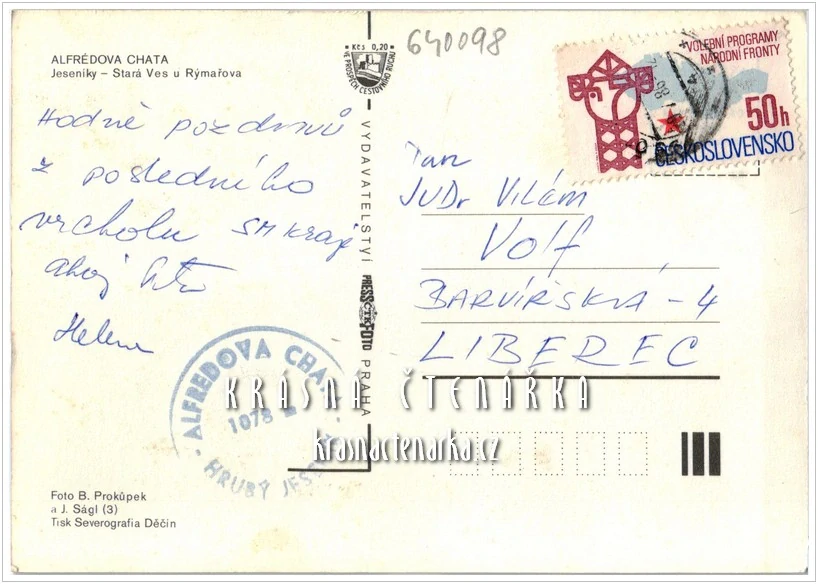 ALFRÉDOVA CHATA
Jeseníky – Stará Ves u Rýmařova
Hodně pozdravů
z posledního
vrcholu SM kraje
ahoj
Helena
ALFREDOVA CHATA
1078 M
HRUBÝ JES
Foto B. Prokůpek
a J. Ságl (3)
Tisk Severografia Děčín
Kčs 0,20
VE PROSPĚCH CESTOVNÍHO RUCHU
VYDAVATELSTVÍ
PRESSFOTO
ČTK
PRAHA
640098
VOLEBNÍ PROGRAMY
NÁRODNÍ FRONTY
50h
ČESKOSLOVENSKO
Pan
JUDr VILÉM
Volf
BARVÍŘSKÁ - 4
LIBEREC
KRÁSNÁ ČTENÁŘKA
krasnactenarka.cz